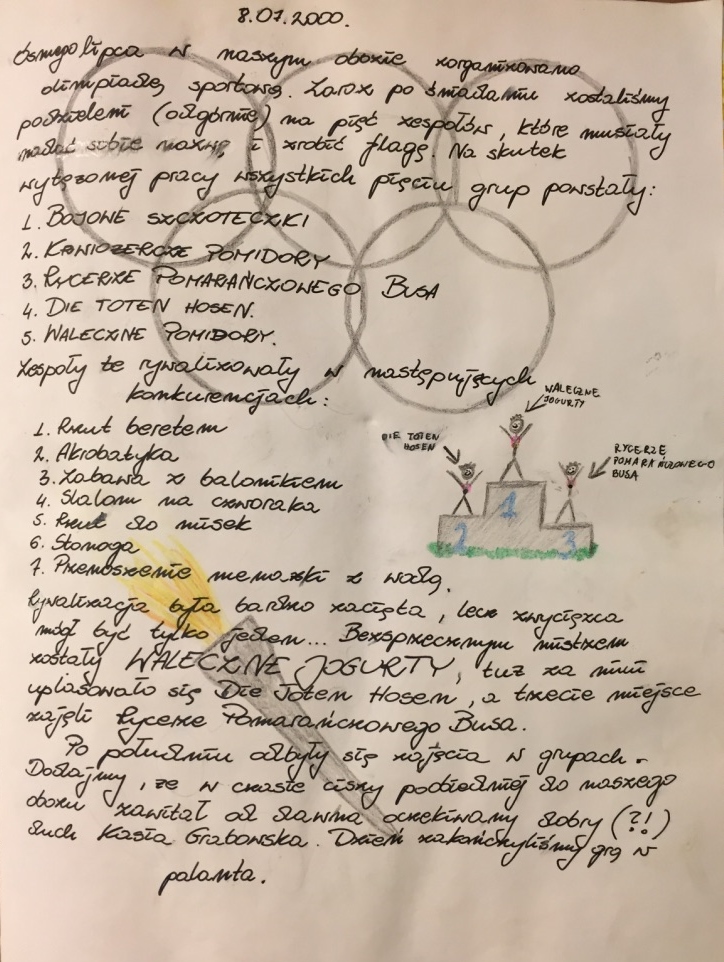 8.07.2000.
Ósmego lipca w naszym obozie zorganizowano
olimpiadę sportową. Zaraz po śniadaniu zostaliśmy
podzieleni (odgórnie) na pięć zespołów, które musiały
nadać sobie nazwę i zrobić flagę. Na skutek
wytężonej pracy wszystkich pięciu grup powstały:
1. BOJOWE SZCZOTECZKI
2. KANIOŻERCZE POMIDORY
3. RYCERZE POMARAŃCZOWEGO BUSA
4. DIE TOTEN HOSEN.
5. WALECZNE POMIDORY.
Zespoły te rywalizowały w następujących
konkurencjach:
1. Rzut beretem
2. Akrobatyka
3. Zabawa z balonikiem
4. Slalom na czworaka
5. Rzut do misek
6. Stonoga
7. Przenoszenie menażki z wodą.
WALECZNE
JOGURTY
DIE TOTEN
HOSEN
RYCERZE
POMARAŃCZOWEGO
BUSA
1
2
3
Rywalizacja była bardzo zacięta, lecz zwycięzca
mógł być tylko jeden... Bezsprzecznym mistrzem
zostały WALECZNE JOGURTY, tuż za nimi
uplasowało się Die Toten Hosen, a trzecie miejsce
zajęli Rycerze Pomarańczowego Busa.
Po południu odbyły się zajęcia w grupach.
Dodajmy, że w czasie ciszy poobiedniej do naszego
obozu zawitał od dawna oczekiwany dobry (?!)
duch Kasia Grabowska. Dzień zakończyliśmy grą w
palanta.